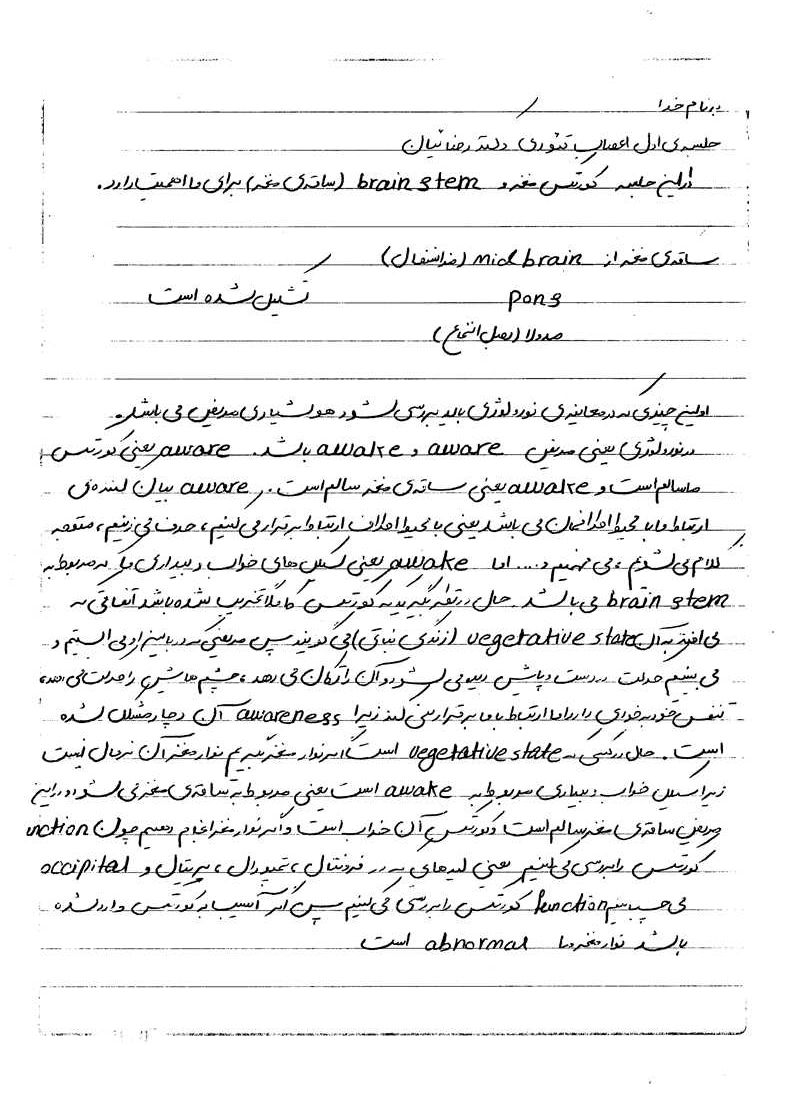 به نام خدا
جلسه ی اول اعصاب تئوری دکتر رضائیان
در این جلسه کورتکس مخ و brain stem (ساقه ی مخ) برای ما اهمیت دارد.
ساقه ی مخ از mid brain (مزانسفال)
pons تشکیل شده است
مدولا (بصل النخاع)
اولین چیزی که در معاینه ی نورولوژی باید بررسی شود هوشیاری مریض می باشد.
در نورولوژی یعنی مریض aware و awake باشد. aware یعنی کورتکس
ما سالم است و awake یعنی ساقه ی مخ سالم است. aware بیان کننده ی
ارتباط ما با محیط اطرافمان می باشد یعنی با محیط اطراف ارتباط برقرار می کنیم، حرف می زنیم، متوجه
کلام می شویم، می فهمیم و.... اما awake یعنی سیکل های خواب و بیداری ما که مربوط به
brain stem می باشد. حال در نظر بگیرید که کورتکس کاملا تخریب شده باشد اتفاقی که
می افتد به آن vegetative state (زندگی نباتی) می گویند پس مریضی که در بالین او می ایستیم و
می بینیم حرکت در دست و پایش دیده می شود و آن را تکان می دهد، چشم هایش را حرکت می دهد،
تنفس خودبخودی را دارد اما ارتباط با ما برقرار نمی کند زیرا awareness آن دچار مشکل شده
است. حال در کسی که vegetative state است اگر نوار مغز بگیریم نوار مغز آن نرمال نیست
زیرا سیکل خواب و بیداری مربوط به awake است یعنی مربوط به ساقه ی مخ می شود و در این
مریض ساقه ی مخ سالم است و کورتکس آن خراب است و اگر نوار مغز انجام دهیم چون nction
کورتکس را بررسی می کنیم یعنی لیدهایی که در فرونتال، تمپورال، پریتال و occipital
می چسبانیم function کورتکس را بررسی می کنیم پس اگر آسیب به کورتکس وارد شده
باشد نوار مغز ما abnormal است